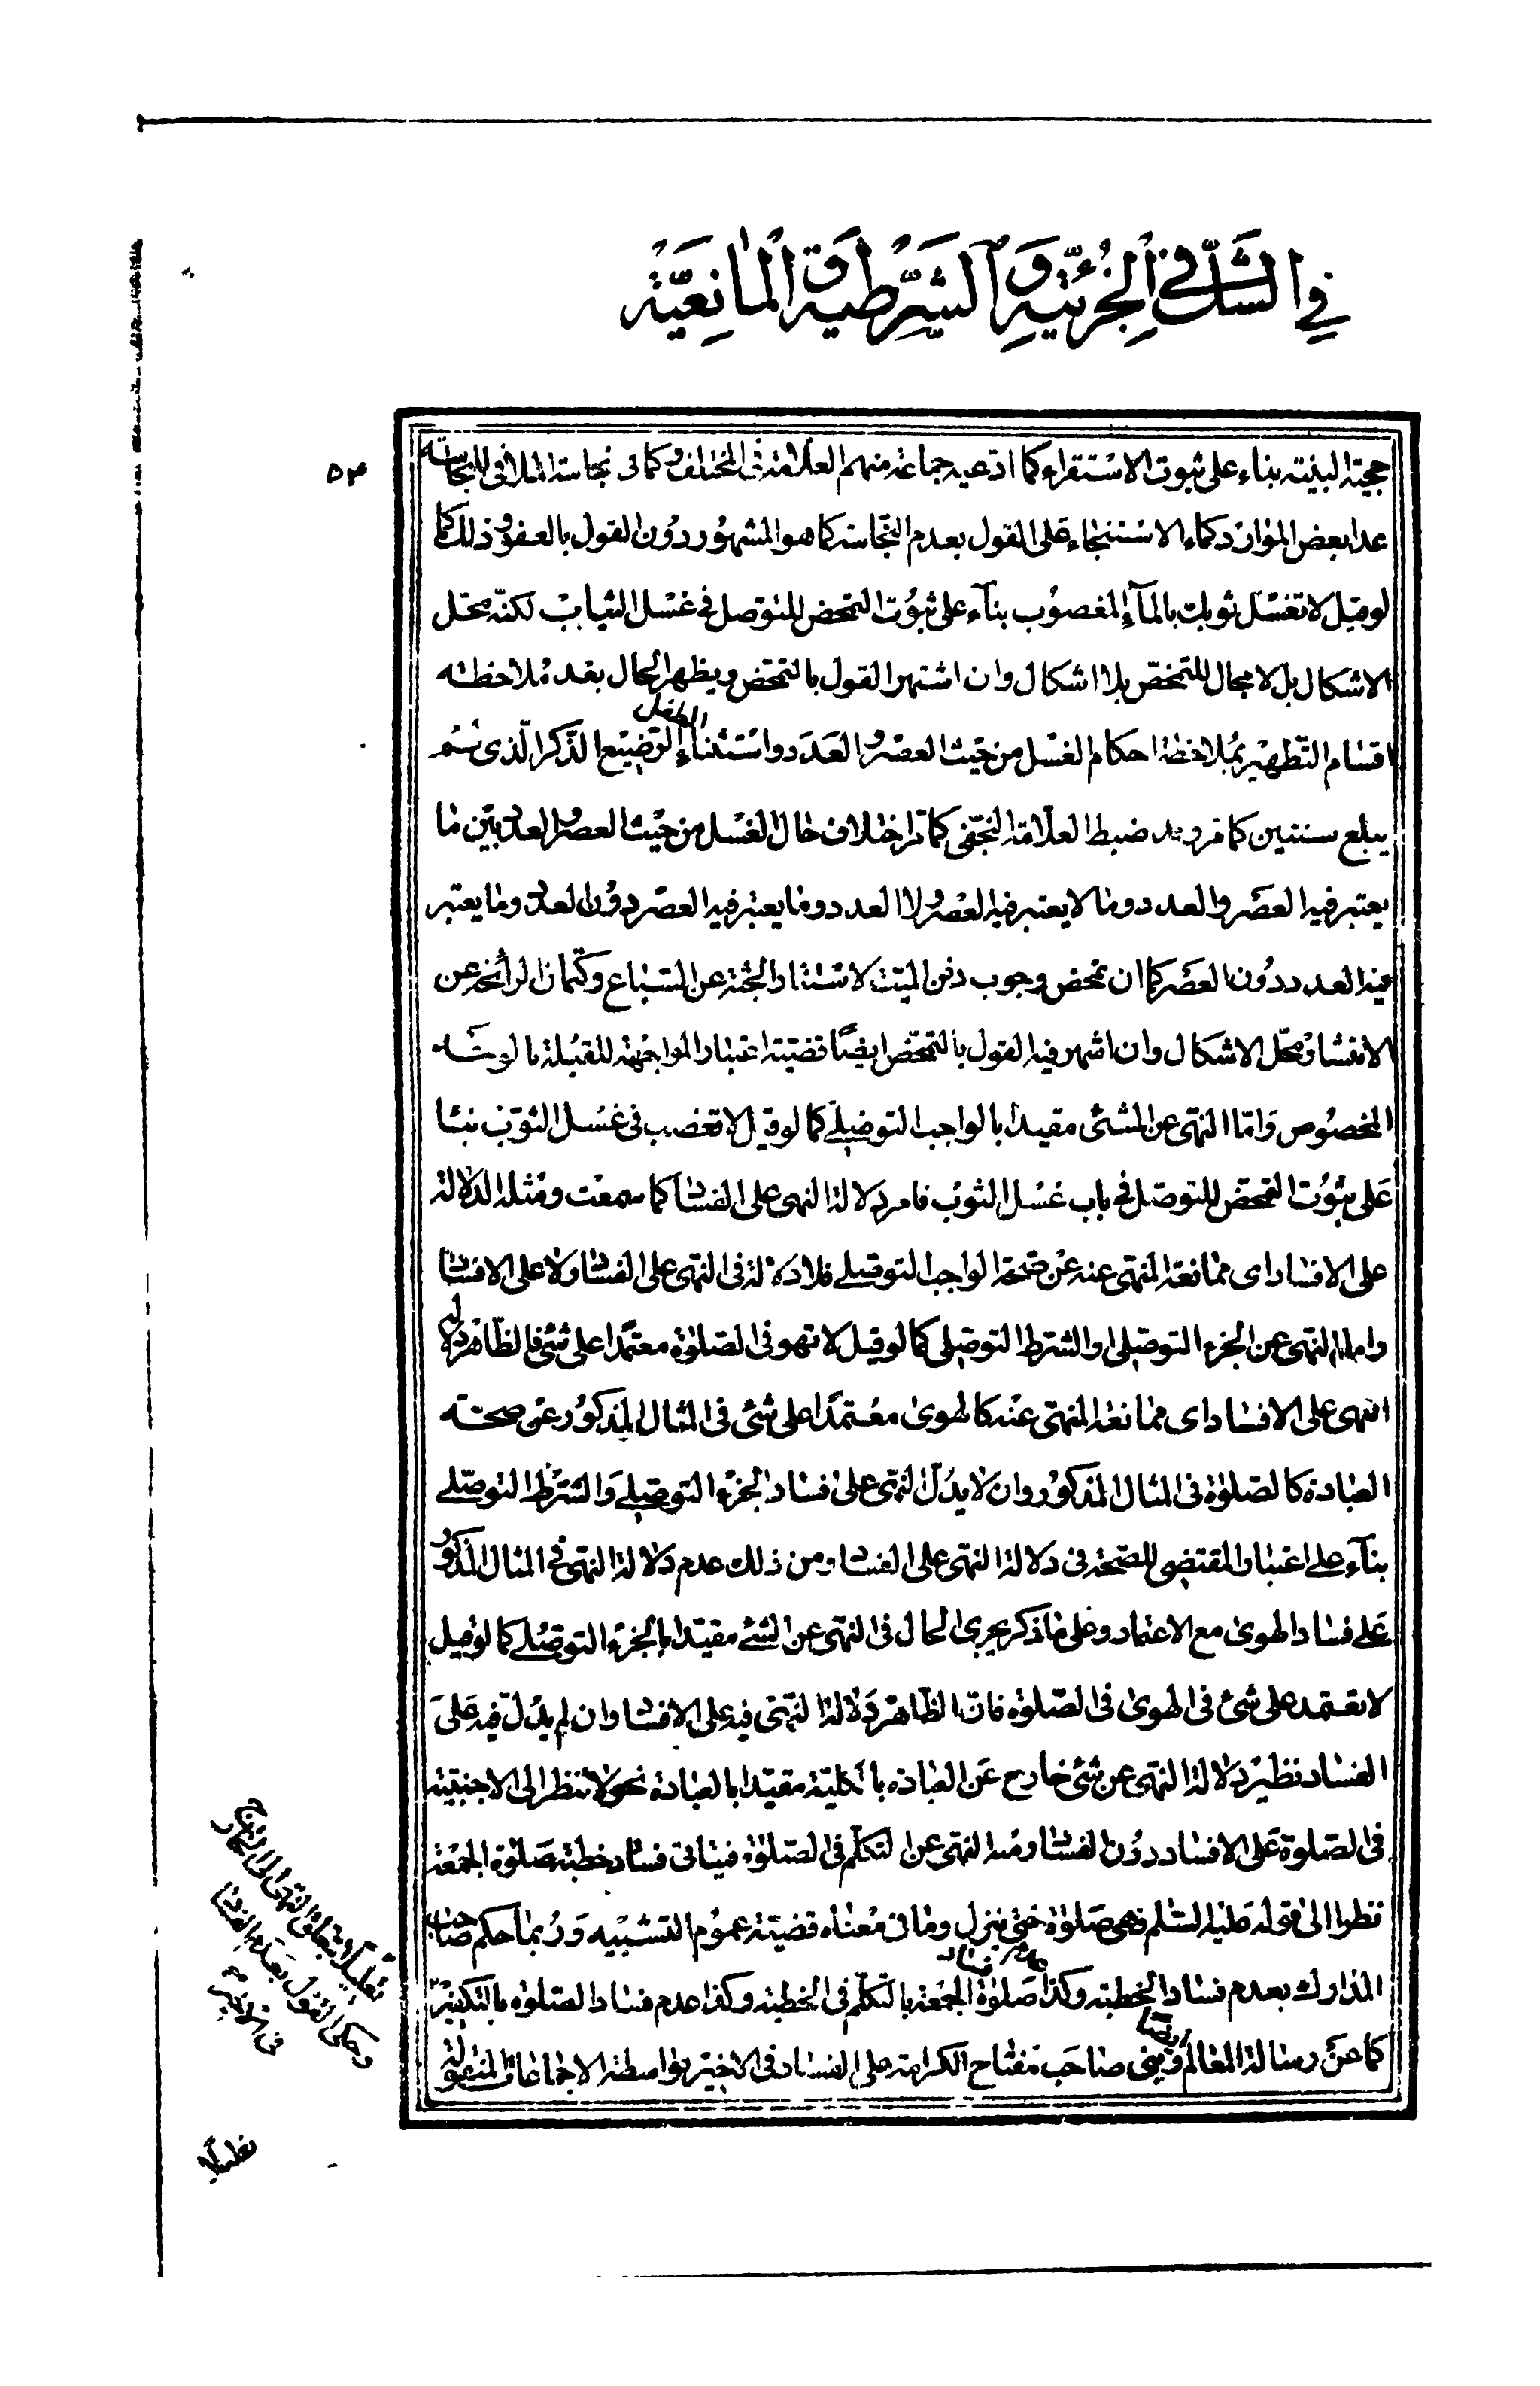 في الشك في الجزئية والشرطية والمانعية
٥٣
حجية البينة بناء على ثبوت الاستقراء كما ادعيه جماعة منهم العلامة في المختلف وكما في نجاسة الملاقى للنجاسة
عدا بعض الموارد كماء الاستنجاء على القول بعدم النجاسة كما هو المشهور دون القول بالعفو وذلك كما
لو قيل لا تغسل ثوبك بالمآء المغصوب بنآء على ثبوت التمحض للتوصل في غسل الثياب لكنه محل
الاشكال بل لا مجال للتمحض بلا اشكال وان اشتهر القول بالتمحض ويظهر الحال بعد ملاحظة
اقسام التطهير بملاحظة احكام الغسل من حيث العصر والعدد واستثناء الطفل الرضيع الذكر الذى لم
يبلغ سنتين كما فى ضبط العلامة النجفى كما ترا ختلاف حال الغسل من حيث العصر والعدد بين ما
يعتبر فيه العصر والعدد وما لا يعتبر فيه العصر ولا العدد وما يعتبر فيه العصر دون العدد وما يعتبر
فيه العدد دون العصر كما ان تمحض وجوب دفن الميت لاستتار الجثة عن السباع وكتمان الرائحة عن
الانتشار محل الاشكال وان اشهر فيه القول بالتمحض ايضًا قضية اعتبار المواجهة للقبلة بالوجه
المخصوص وامّا النهى عن الشئ مقيدا بالواجب التوصلي كما لو قيل لا تغصب فى غسل الثوب بناء
على ثبوت التمحض للتوصل في باب غسل الثوب فامر دلالة النهى على الفساد كما سمعت ومثله الدلالة
على الافساد اى ممانعة المنهى عنه عن صحة الواجب التوصلي فلا دلالة فى النهى على الفساد ولا على الافساد
واما النهى عن الجزء التوصلى او الشرط التوصلى كما لو قيل لا تهو فى الصلوة معتمدا على شئ فالظاهر دلالة
النهى على الافساد اى ممانعة المنهى عنه كالهوى معتمدًا على شئ فى المثال المذكور عن صحة
العبادة كالصلوة فى المثال المذكور وان لا يدل النهى على فساد الجزء التوصلي والشرط التوصلي
بنآء على اعتبار المقتضى للصحة فى دلالة النهى على الفساد ومن ذلك عدم دلالة النهى فى المثال المذكور
على فساد الهوى مع الاعتماد وعلى ما ذكر يجرى الحال فى النهى عن الشئ مقيدا بالجزء التوصلي كما لو قيل
لا تعتمد على شئ فى الهوى فى الصلوة فان الظاهر دلالة النهى فيه على الافساد وان لم يدل فيه على
الفساد نظير دلالة النهى عن شئ خارج عن العبادة بالكلية مقيدا بالعبادة نحو لا تنظر الى الاجنبية
فى الصلوة على الافساد دون الفساد ومنه النهى عن التكلم فى الصلوة فيتاتى فساد خطبة صلوة الجمعة
نظرا الى قوله عليه السلم فهى صلوة حتى ينزل وما فى معناه قضية عموم التشبيه وربما حكم صاحب
المدارك بعدم فساد الخطبة وكذا عدم فساد صلوة الجمعة بالتكلم فى الخطبة وكذا عدم فساد الصلوة بالتكفير
كما عن رسالة المعالم ايضا وبنى صاحب مفتاح الكرامة على الفساد فى الاخير بواسطة الاجماعات المنقولة
تعليلا بتعلق النهى الى الخارج
وحكى القول بعدم الفساد
فى الاخير
تعليلا